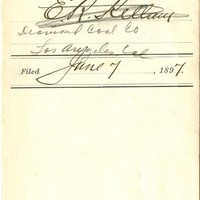 E. K. Kellam
Diamond Coal Co.
Los Angeles Cal
Filed June 7, 1897.